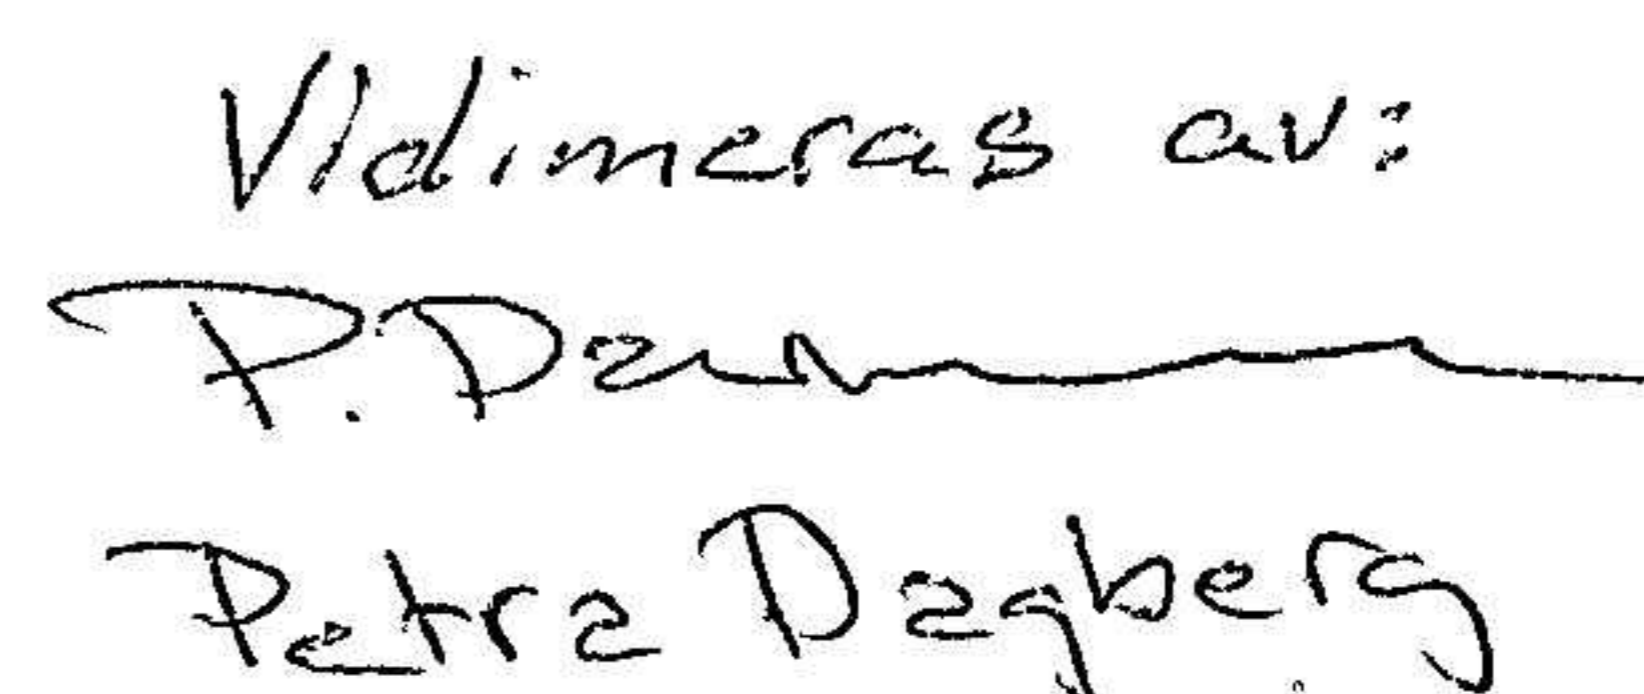 Vidimeras av:
P. Da
Petra Dagberg